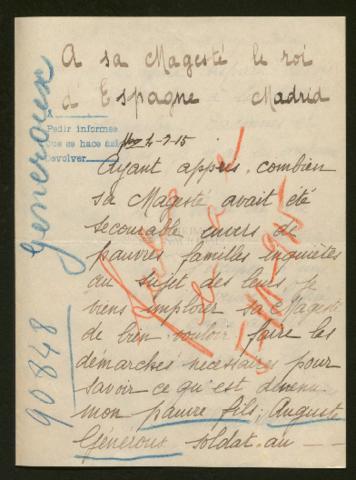 A sa Magesté le roi
d'Espagne Madrid
A
Pedir informes
Que se hace así
Devolver
4-9-15
Ayant appris combien
sa Magesté avait été
secourable envers de
pauvres familles inquiètes
au sujet des leurs, je
viens implorer sa Magesté
de bien vouloir faire les
démarches nécessaires pour
savoir ce qu'est devenu
mon pauvre fils, Auguste
Généroux soldat au
Généroux
90848